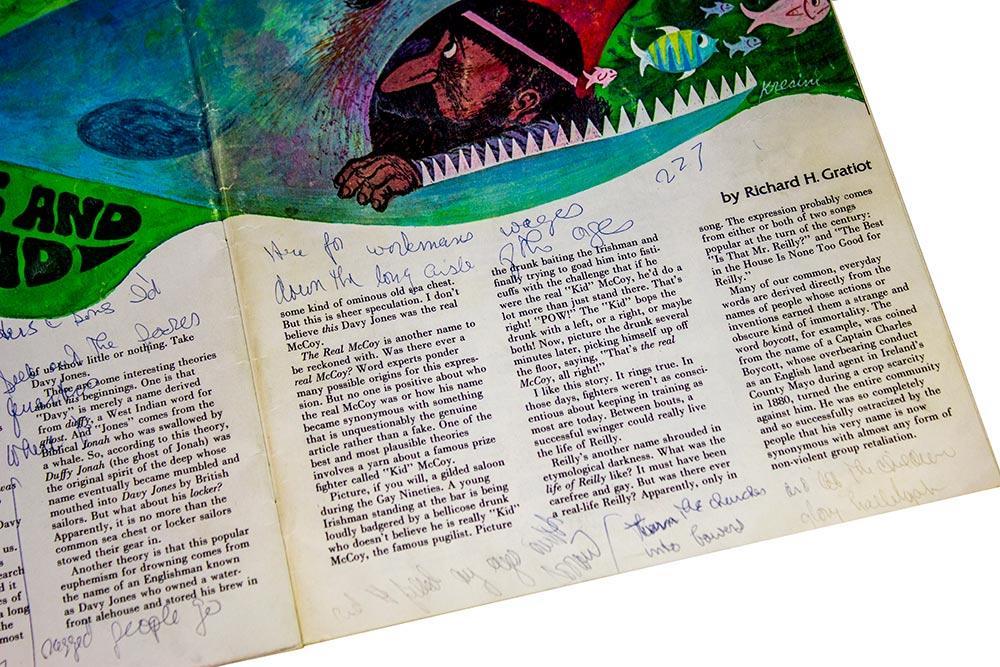 Kresin
S AND
NDY
227
by Richard H. Gratiot
Are for workmans wages
down the long aisle of the ages
ders & sons Id
and the Dozes
us.
earch
d it
es of
a long
the
most
Davy
of us know little or nothing. Take
Davy Jones.
There are some interesting theories
about his beginnings. One is that
"Davy" is merely a name derived
from duffy, a West Indian word for
ghost. And "Jones" comes from the
biblical Jonah who was swallowed by
a whale. So, according to this theory,
Duffy Jonah (the ghost of Jonah) was
the original spirit of the deep whose
name eventually became mumbled and
mouthed into Davy Jones by British
sailors. But what about his locker?
Apparently, it is no more than the
common sea chest or locker sailors
stowed their gear in.
Another theory is that this popular
euphemism for drowning comes from
the name of an Englishman known
as Davy Jones who owned a water-
front alehouse and stored his brew in
ragged people go
some kind of ominous old sea chest.
But this is sheer speculation. I don't
believe this Davy Jones was the real
McCoy.
The Real McCoy is another name to
be reckoned with. Was there ever a
real McCoy? Word experts ponder
many possible origins for this expres-
sion. But no one is positive about who
the real McCoy was or how his name
became synonymous with something
that is unquestionably the genuine
article rather than a fake. One of the
best and most plausible theories
involves a yarn about a famous prize
fighter called "Kid" McCoy.
Picture, if you will, a gilded saloon
during the Gay Nineties. A young
Irishman standing at the bar is being
loudly badgered by a bellicose drunk
who doesn't believe he is really "Kid"
McCoy, the famous pugilist. Picture
the drunk baiting the Irishman and
finally trying to goad him into fisti-
cuffs with the challenge that if he
were the real "Kid" McCoy, he'd do a
lot more than just stand there. That's
right! "POW!" The "Kid" bops the
drunk with a left, or a right, or maybe
both! Now, picture the drunk several
minutes later, picking himself up off
the floor, saying, "That's the real
McCoy, all right!"
I like this story. It rings true. In
those days, fighters weren't as consci-
entious about keeping in training as
most are today. Between bouts, a
successful swinger could really live
the life of Reilly.
Reilly's another name shrouded in
etymological darkness. What was the
life of Reilly like? It must have been
carefree and gay. But was there ever
a real-life Reilly? Apparently, only in
song. The expression probably comes
from either or both of two songs
popular at the turn of the century:
"Is That Mr. Reilly?" and "The Best
in the House Is None Too Good for
Reilly."
Many of our common, everyday
words are derived directly from the
names of people whose actions or
inventions earned them a strange and
obscure kind of immortality. The
word boycott, for example, was coined
from the name of a Captain Charles
Boycott, whose overbearing conduct
as an English land agent in Ireland's
County Mayo during a crop scarcity
in 1880, turned the entire community
against him. He was so completely
and so successfully ostracized by the
people that his very name is now
synonymous with almost any form of
non-violent group retaliation.
turn the churches
into bowers
and all the children
glory hallelujah